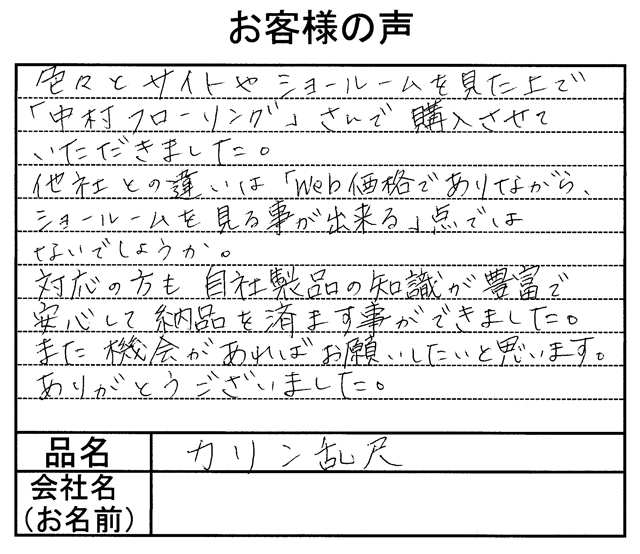 お客様の声
色々とサイトやショールームを見た上で
「中村フローリング」さんで購入させて
いただきました。
他社との違いは「Web価格でありながら、
ショールームを見る事が出来る」点では
ないでしょうか。
対応の方も自社製品の知識が豊富で
安心して納品を済ます事ができました。
また機会があればお願いしたいと思います。
ありがとうございました。
品名 カリン乱尺
会社名
(お名前)